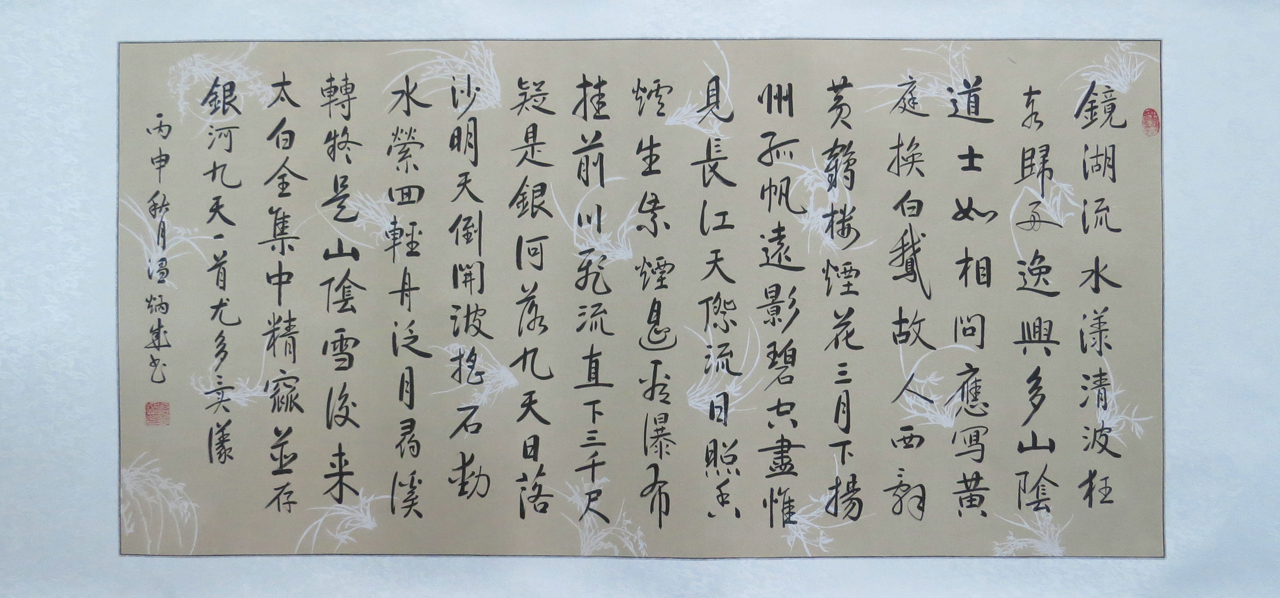 鏡湖流水漾清波狂
客歸舟逸興多山陰
道士如相問應寫黃
庭換白鵝故人西辭
黃鶴楼煙花三月下揚
州孤帆遠影碧空盡惟
見長江天際流日照香
爐生紫煙遙看瀑布
挂前川飛流直下三千尺
疑是銀河落九天日落
沙明天倒開波搖石動
水縈回輕舟泛月尋溪
轉疑是山陰雪後来
太白全集中精窳並存
銀河九天一首尤多
丙申秋月温炳成书